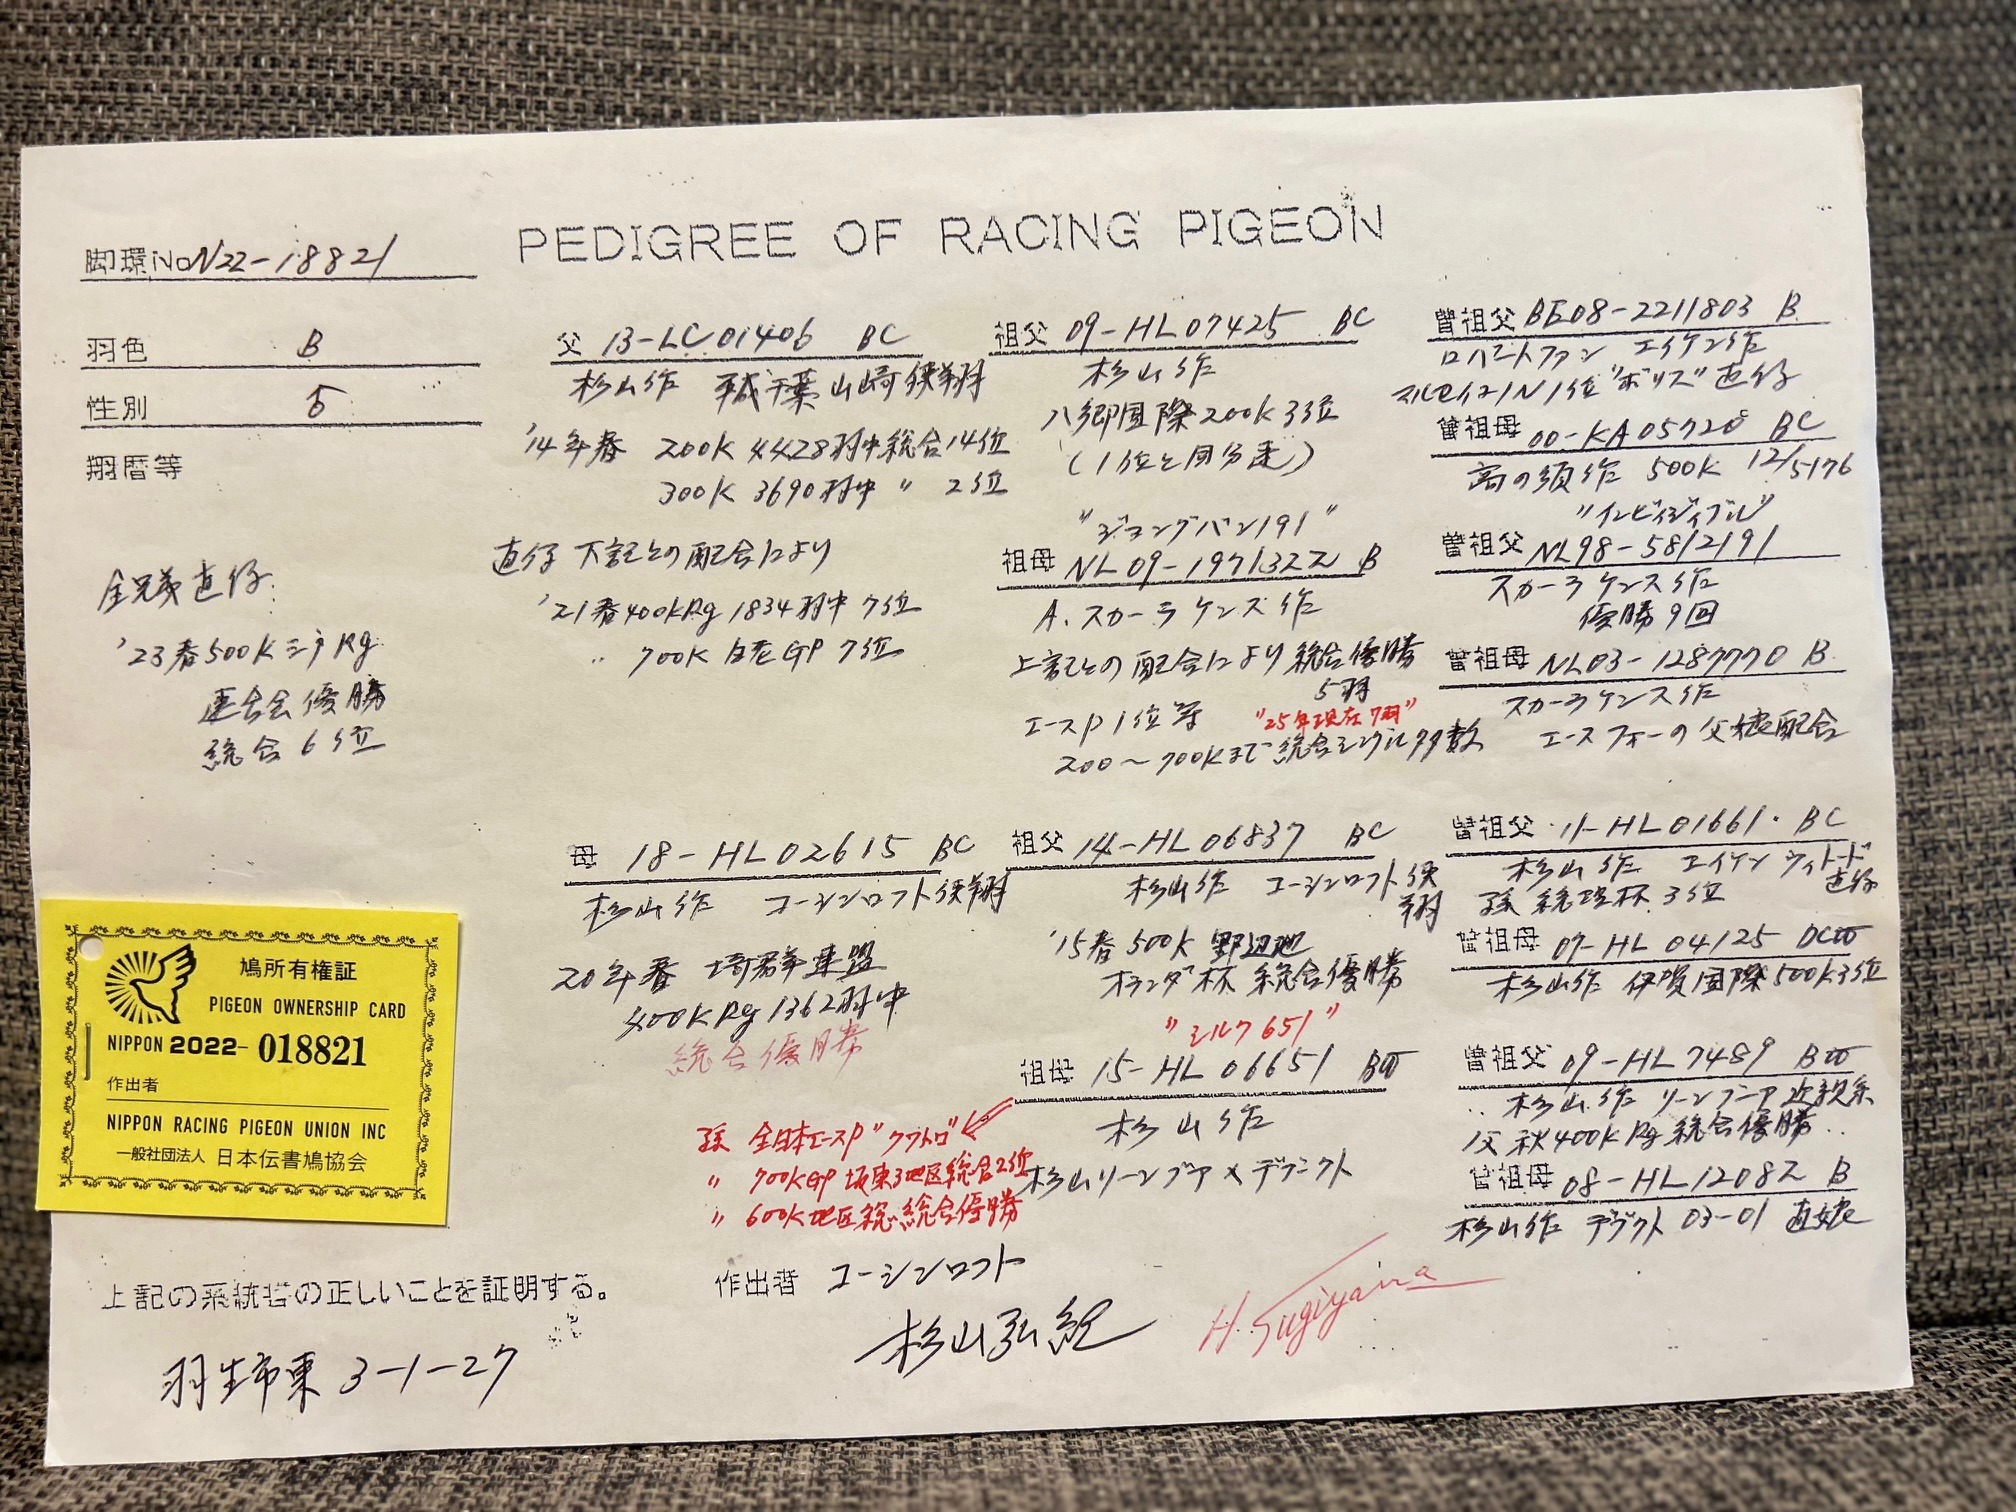 PEDIGREE OF RACING PIGEON
脚環No N22-18821
羽色 B
性別 ♂
翔歴等
全兄弟直仔
'23春500K Rg
連合会優勝
総合6位
父 13-LC01406 BC
杉山作 千葉 山崎 使翔
'14年春 200K 4428羽中総合14位
300K 3690羽中 〃 2位
直仔 下記との配合により
'21春400KRg 1834羽中 7位
〃 700K GP 7位
祖父 09-HL07425 BC
杉山作
八郷国際200K 3位
(1位と同分速)
"ジョングバン191"
祖母 NL09-1971322 B
A.スカーラケンス作
上記との配合により総合優勝
5羽
エースP1位等 "25年現在7羽"
200〜700Kまで総合シングル多数
曽祖父 BE08-2211803 B
ロバートファン エイケン作
マルセイユIN1位"ボリス"直仔
曽祖母 00-KA05720 BC
高の須作 500K 12/5176
"インビィジィブル"
曽祖父 NL98-5812191
スカーラケンス作
優勝9回
曽祖母 NL03-1287770 B
スカーラケンス作
エースフォーの父娘配合
母 18-HL02615 BC
杉山作 コーシンロフト使翔
20年春 埼群連盟
400KRg 1362羽中
総合優勝
祖父 14-HL06837 BC
杉山作 コーシンロフト使
翔
'15春500K 野辺地
オランダ杯 総合優勝
"シルク651"
祖母 15-HL06651 BW
杉山作
杉山リーンブア×デフクト
孫 全日本エースP"クワトロ"
〃 700KGP 坂東3地区総合2位
〃 600K地区総合優勝
曽祖父 11-HL01661 BC
杉山作 エイケン ウィトード
直仔
孫 総理杯 3位
曽祖母 07-HL04125 DCW
杉山作 伊賀国際500K3位
曽祖父 09-HL7489 BW
杉山作 リーンブーア近親系
父 秋400KRg総合優勝
曽祖母 08-HL12082 B
杉山作 デフクト 03-01 直娘
鳩所有権証
PIGEON OWNERSHIP CARD
NIPPON 2022-018821
作出者
NIPPON RACING PIGEON UNION INC
一般社団法人 日本伝書鳩協会
上記の系統書の正しいことを証明する。
羽生市東 3-1-27
作出者 コーシンロフト
杉山弘紀
H.Sugiyama